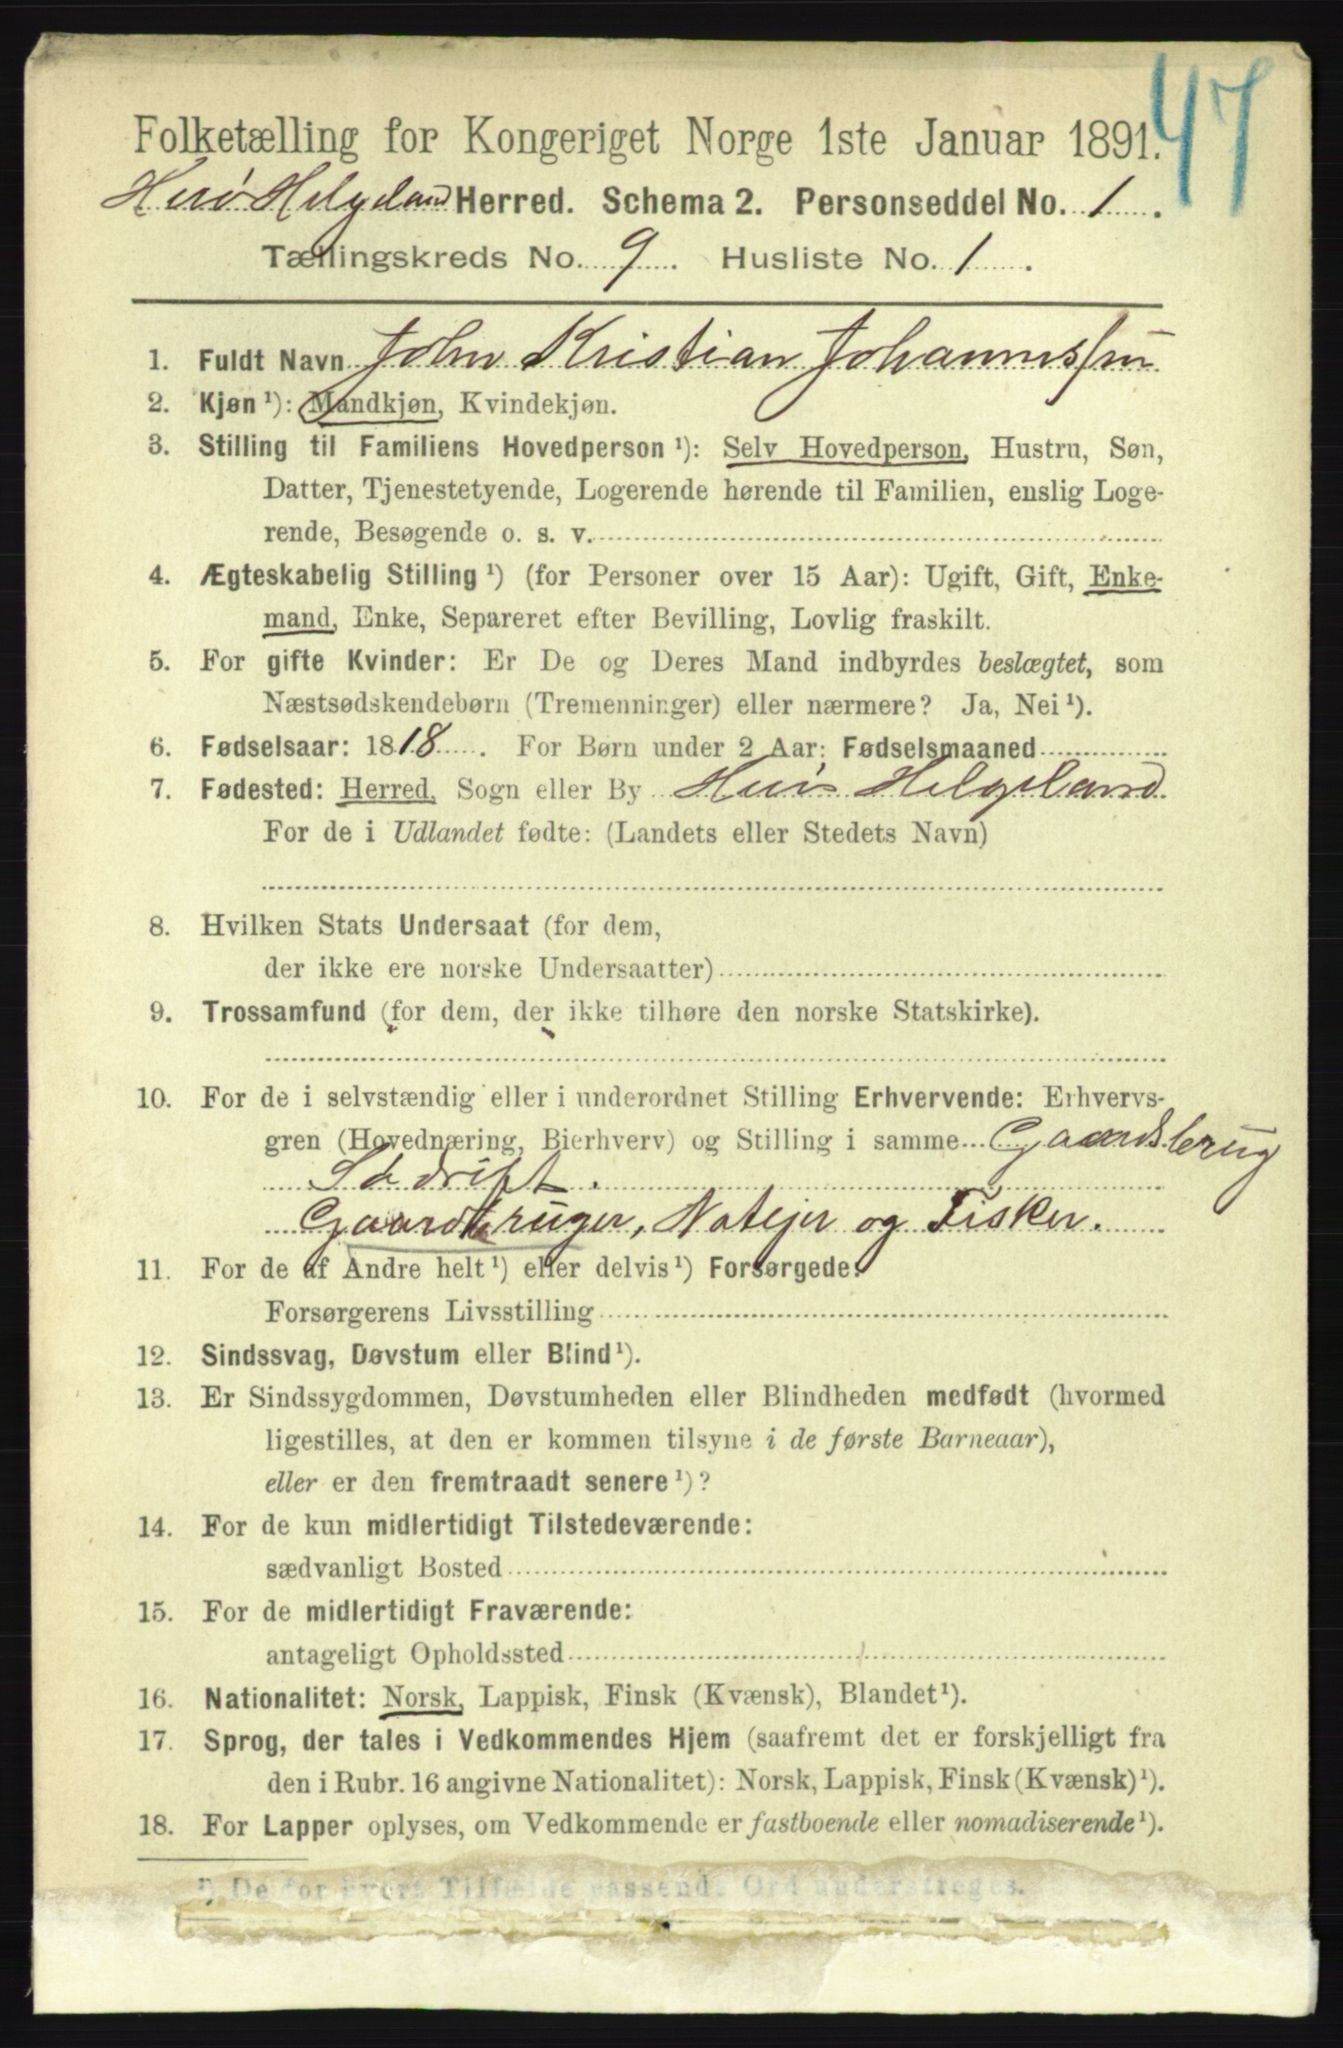 47
Folketælling for Kongeriget Norge 1ste Januar 1891.
Herø Helgeland Herred. Schema 2. Personseddel No. 1.
Tællingskreds No. 9. Husliste No. 1.
1. Fuldt Navn John Kristian Johannessen
2. Kjøn¹): Mandkjøn, Kvindekjøn.
3. Stilling til Familiens Hovedperson¹): Selv Hovedperson, Hustru, Søn,
Datter, Tjenestetyende, Logerende hørende til Familien, enslig Loge-
rende, Besøgende o. s. v.
4. Ægteskabelig Stilling¹) (for Personer over 15 Aar): Ugift, Gift, Enke-
mand, Enke, Separeret efter Bevilling, Lovlig fraskilt.
5. For gifte Kvinder: Er De og Deres Mand indbyrdes beslægtet, som
Næstsødskendebørn (Tremenninger) eller nærmere? Ja, Nei¹).
6. Fødselsaar: 1818. For Børn under 2 Aar: Fødselsmaaned
7. Fødested: Herred, Sogn eller By Herø Helgeland
For de i Udlandet fødte: (Landets eller Stedets Navn)
8. Hvilken Stats Undersaat (for dem,
der ikke ere norske Undersaatter)
9. Trossamfund (for dem, der ikke tilhøre den norske Statskirke).
10. For de i selvstændig eller i underordnet Stilling Erhvervende: Erhvervs-
gren (Hovednæring, Bierhverv) og Stilling i samme Gaardsbrug
Sædrift.
Gaardbruger, Notejer og Fisker.
11. For de af Andre helt¹) eller delvis¹) Forsørgede:
Forsørgerens Livsstilling
12. Sindssvag, Døvstum eller Blind¹).
13. Er Sindssygdommen, Døvstumheden eller Blindheden medfødt (hvormed
ligestilles, at den er kommen tilsyne i de første Barneaar),
eller er den fremtraadt senere¹)?
14. For de kun midlertidigt Tilstedeværende:
sædvanligt Bosted
15. For de midlertidigt Fraværende:
antageligt Opholdssted
16. Nationalitet: Norsk, Lappisk, Finsk (Kvænsk), Blandet¹).
17. Sprog, der tales i Vedkommendes Hjem (saafremt det er forskjelligt fra
den i Rubr. 16 angivne Nationalitet): Norsk, Lappisk, Finsk (Kvænsk)¹).
18. For Lapper oplyses, om Vedkommende er fastboende eller nomadiserende¹).
¹) De for hvert Tilfælde passende Ord understreges.